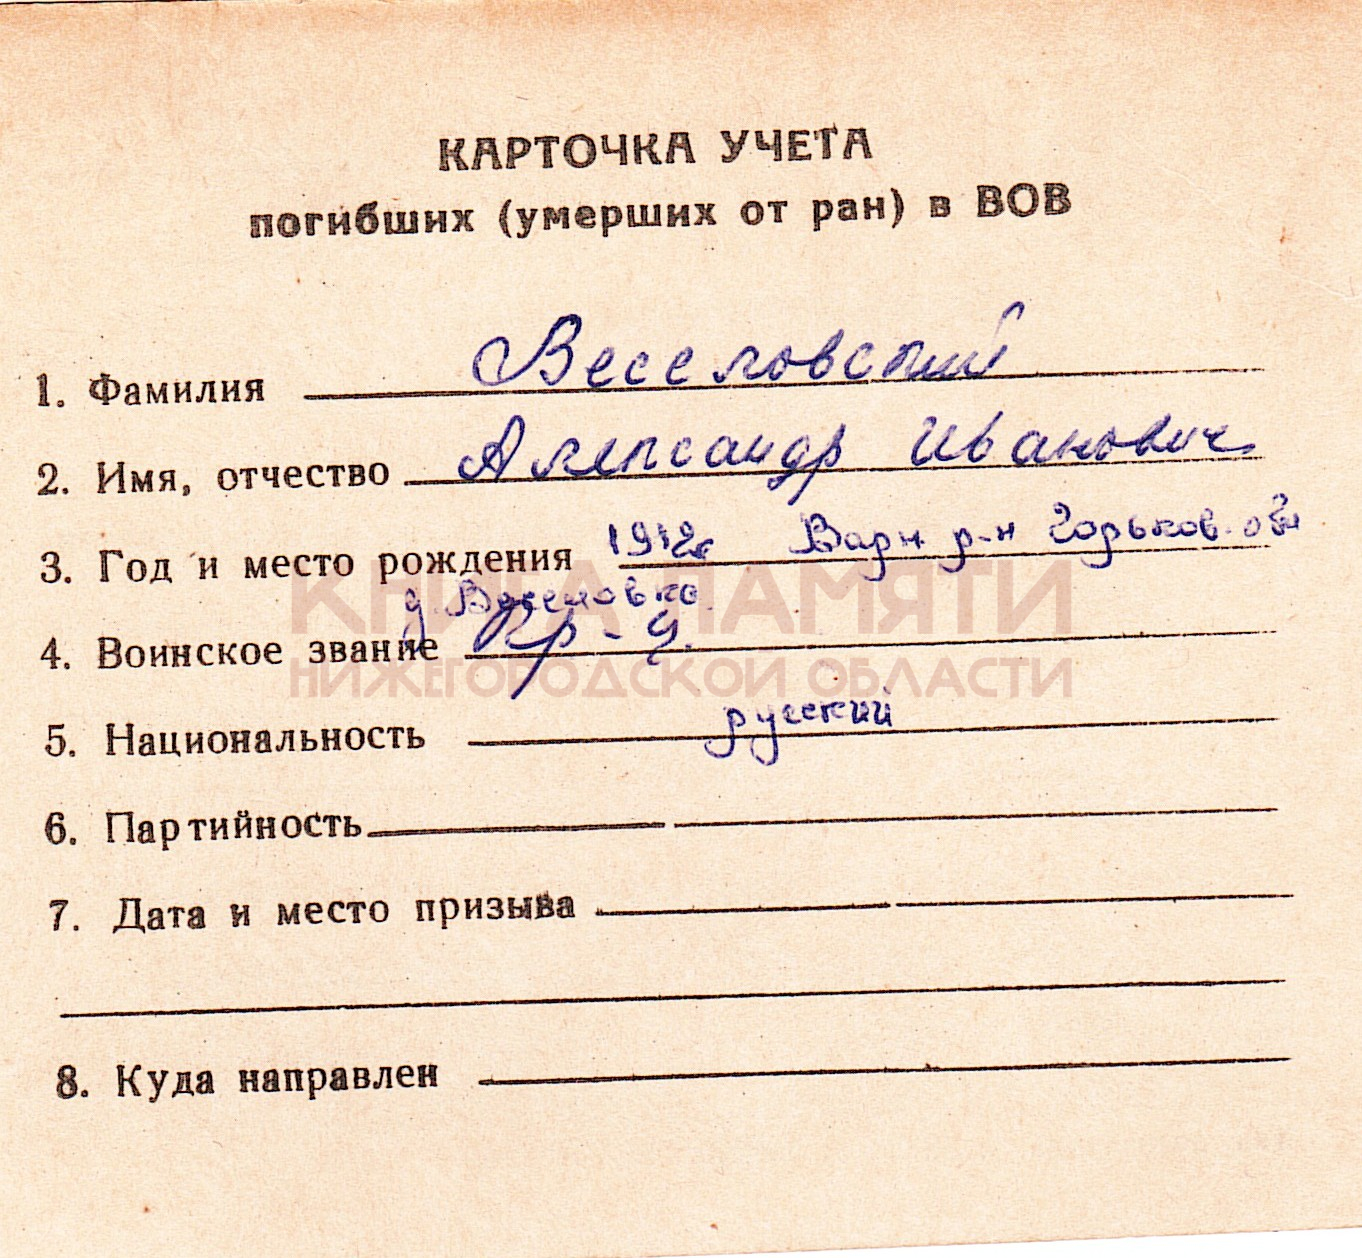 КАРТОЧКА УЧЕТА
погибших (умерших от ран) в ВОВ
1. Фамилия Веселовский
2. Имя, отчество Александр Иванович
3. Год и место рождения 1912г Варн р-н Горьков. обл
д. Веселовка
КНИГА ПАМЯТИ
4. Воинское звание кр-ц.
НИЖЕГОРОДСКОЙ ОБЛАСТИ
5. Национальность русский
6. Партийность
7. Дата и место призыва
8. Куда направлен